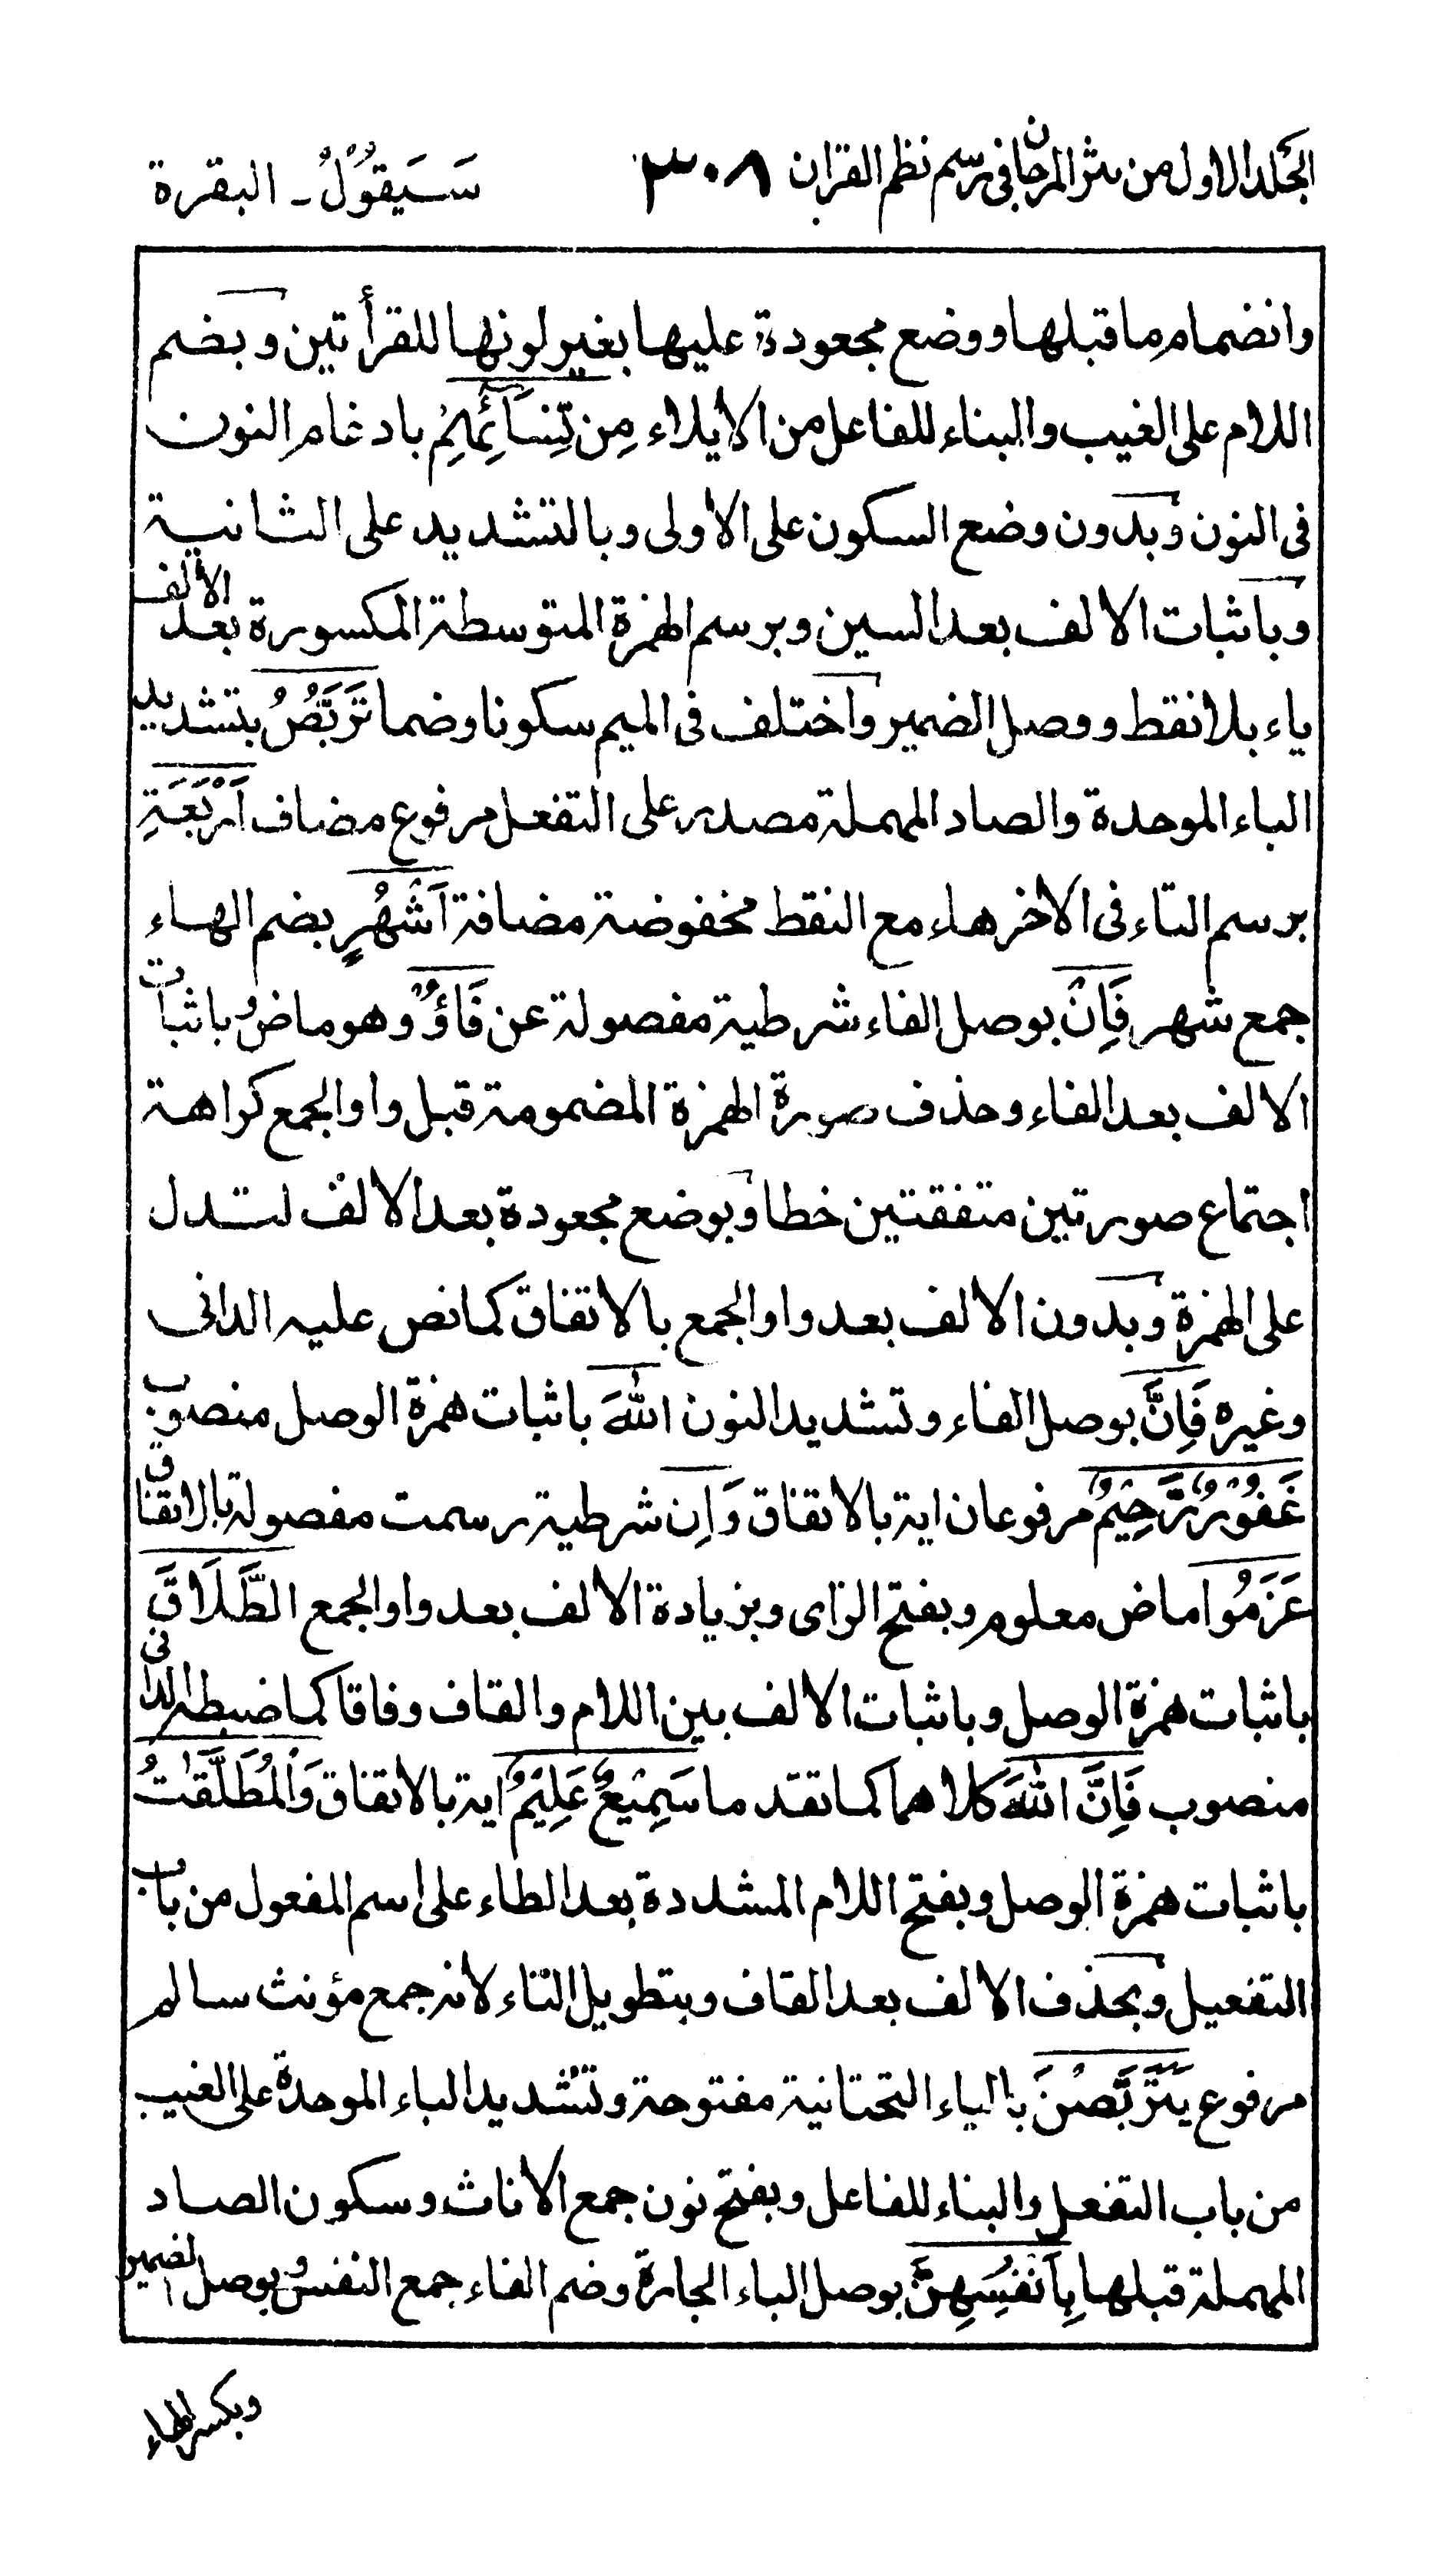 الجلد الاول من نثر المرجان فى رسم نظم القران ٣٠٨ سَيَقُوْلُ - البقرة
وانضمام ما قبلها ووضع مجعودة عليها بغير لونها للقرأتين و بضم
اللام على الغيب والبناء للفاعل من الايلاء مِن نِّسَآئِهِمْ بادغام النون
فى النون وبدون وضع السكون على الاولى وبالتشديد على الثانية
وباثبات الالف بعد السين وبرسم الهمزة المتوسطة المكسورة بعد الالف
ياء بلا نقط ووصل الضمير واختلف فى الميم سكونا وضما تَرَبُّصُ بتشديد
الباء الموحدة والصاد المهملة مصدر على التفعل مرفوع مضاف اَرْبَعَةِ
برسم التاء فى الاخر هاء مع النقط مخفوضة مضافة اَشْهُرٍ بضم الهاء
جمع شهر فَاِنْ بوصل الفاء شرطية مفصولة عن فَاؤُ وهو ماض باثبات
الالف بعد الفاء وحذف صورة الهمزة المضمومة قبل واو الجمع كراهة
اجتماع صورتين متفقتين خطا وبوضع مجعودة بعد الالف لتدل
على الهمزة وبدون الالف بعد واو الجمع بالاتفاق كما نص عليه الدانى
وغيره فَاِنَّ بوصل الفاء وتشديد النون اللّٰهَ باثبات همزة الوصل منصوب
غَفُوْرٌ رَّحِيْمٌ مرفوعان اية بالاتفاق وَاِن شرطية رسمت مفصولة بالاتفاق
عَزَمُوا ماض معلوم وبفتح الزاى وبزيادة الالف بعد واو الجمع الطَّلَاقَ
باثبات همزة الوصل وباثبات الالف بين اللام والقاف وفاقا كما ضبطه الدانى
منصوب فَاِنَّ اللّٰهَ كلاهما كما تقدما سَمِيْعٌ عَلِيْمٌ اية بالاتفاق وَالْمُطَلَّقٰتُ
باثبات همزة الوصل وبفتح اللام المشددة بعد الطاء على اسم المفعول من باب
التفعيل وبحذف الالف بعد القاف وبتطويل التاء لانه جمع مؤنث سالم
مرفوع يَتَرَبَّصْنَ بالياء التحتانية مفتوحة وتشديد الباء الموحدة على الغيب
من باب التفعل والبناء للفاعل وبفتح نون جمع الاناث وسكون الصاد
المهملة قبلها بِاَنفُسِهِنَّ بوصل الباء الجارة وضم الفاء جمع النفس وبوصل الضمير
وبكسر الهاء